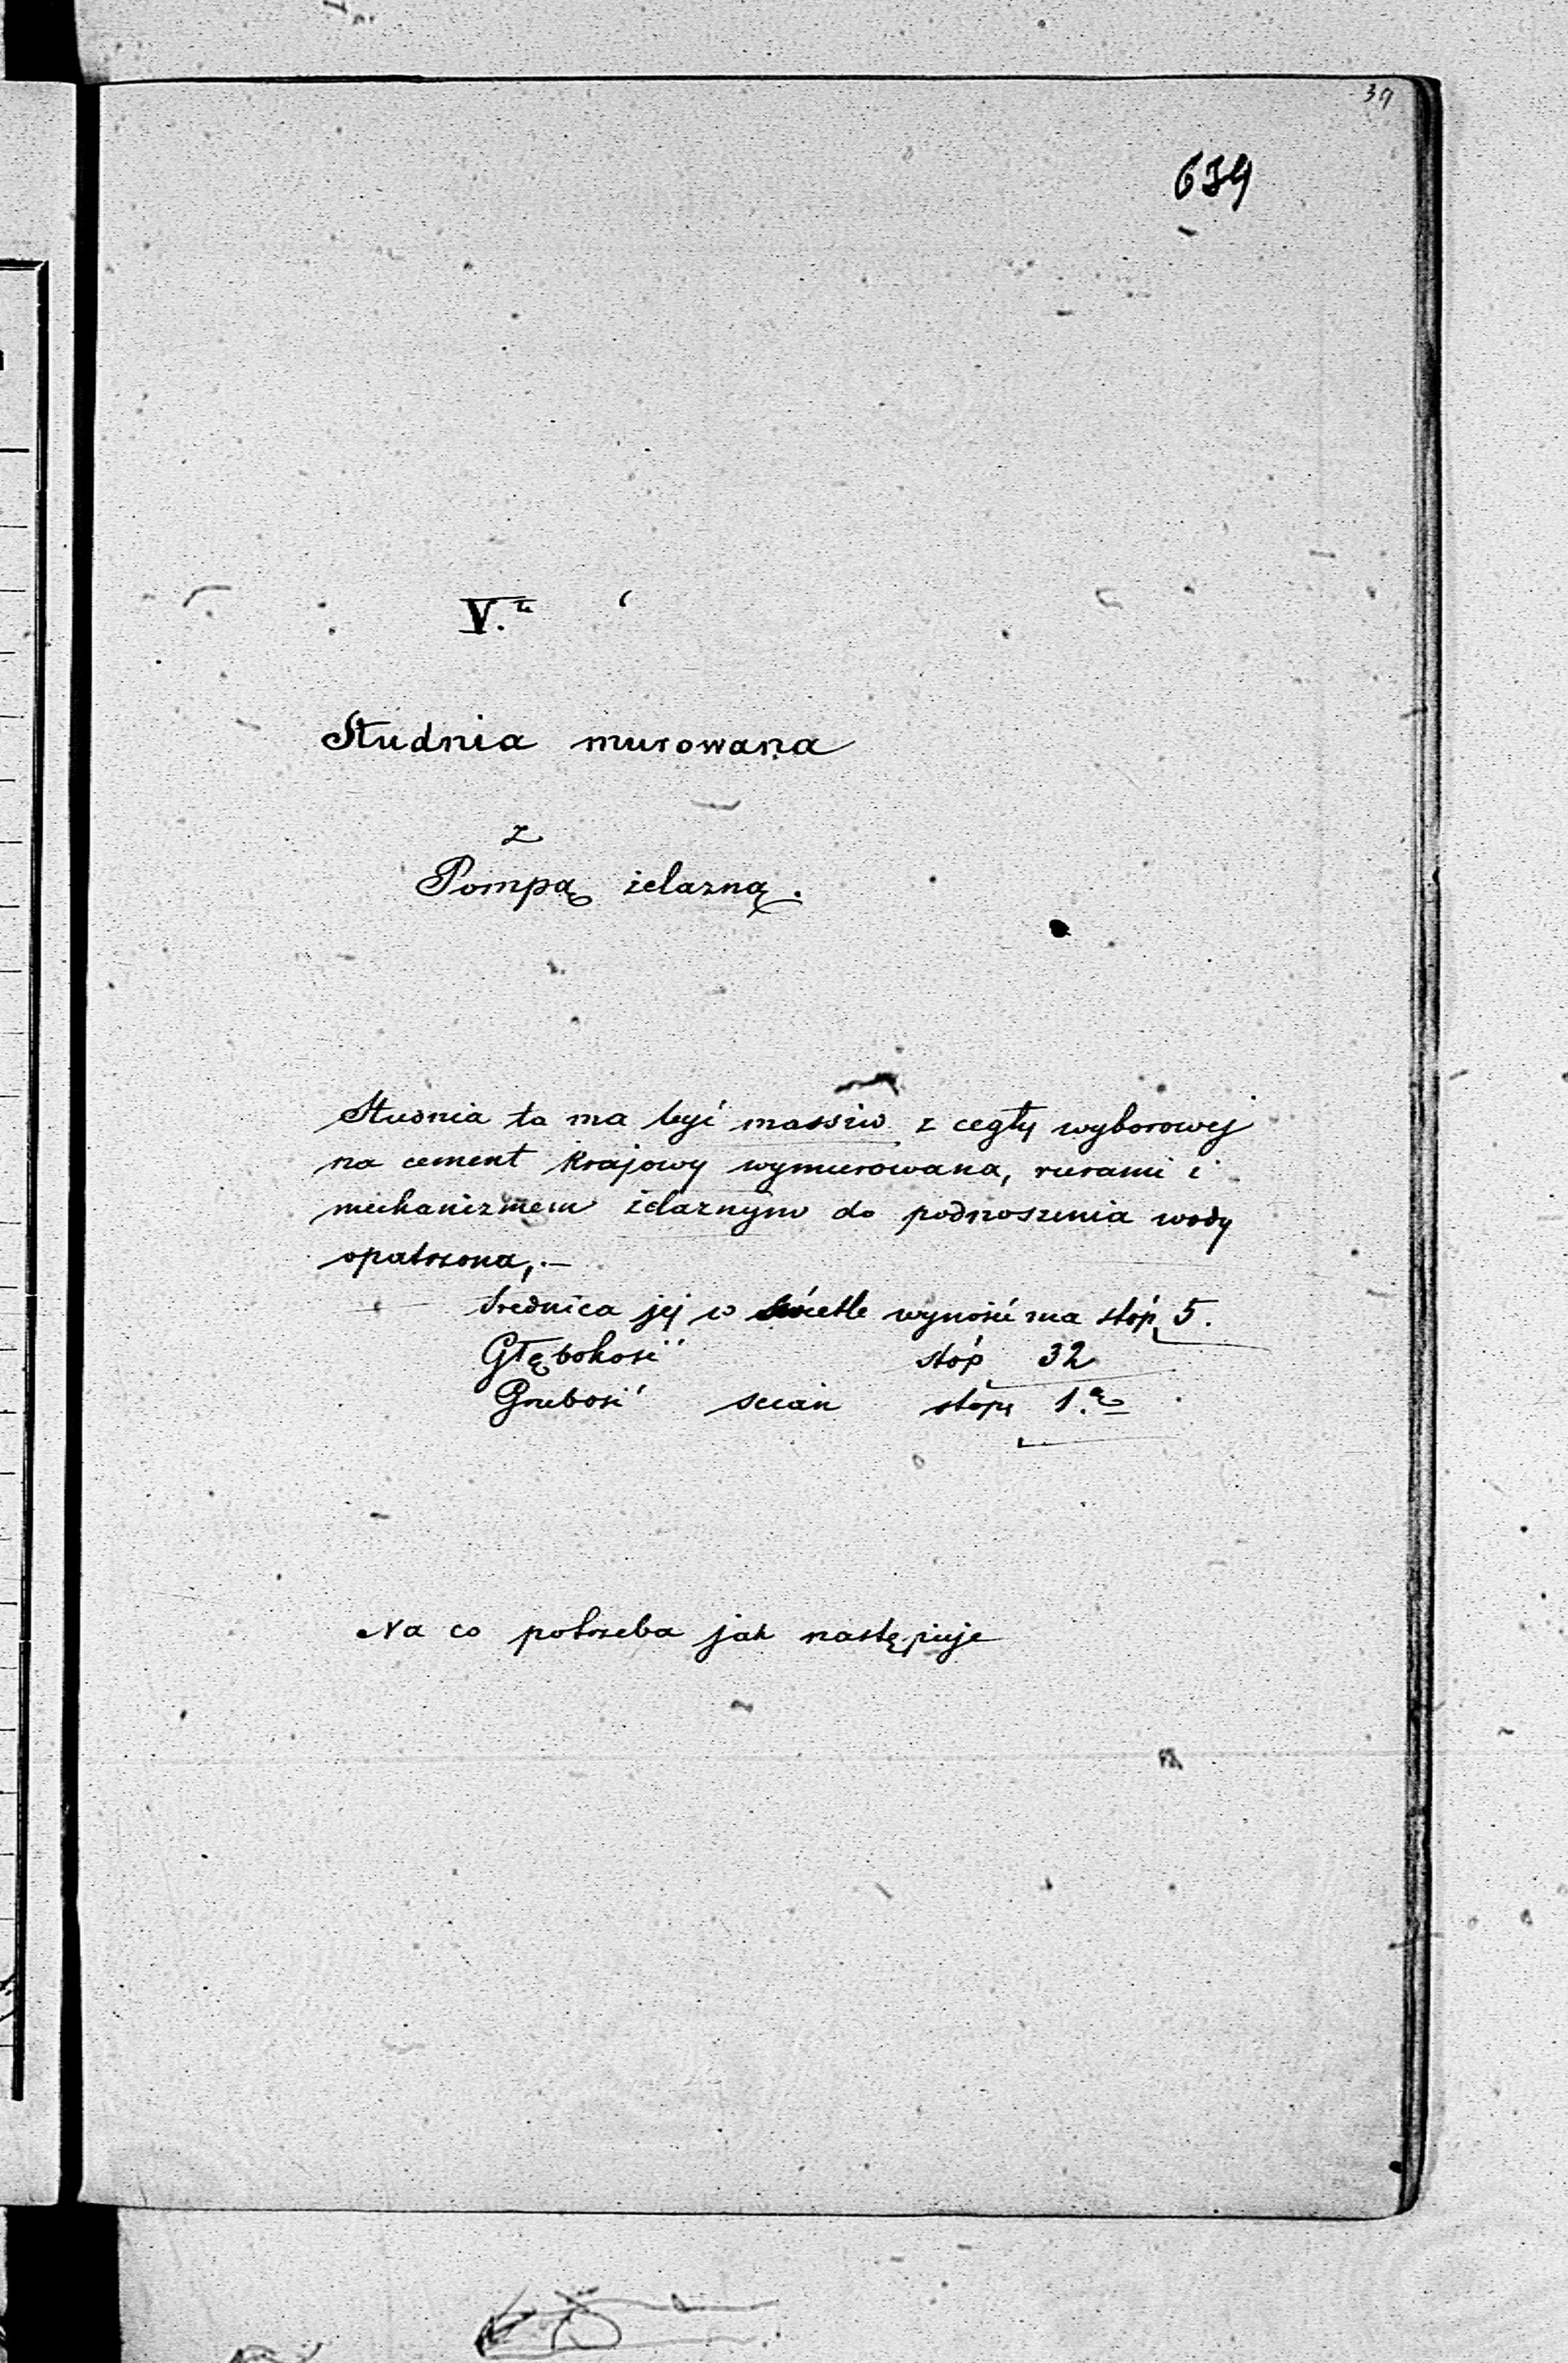 39
634
V.
Studnia murowana
z
Pompą żelazną.
Studnia ta ma być massiw z cegły wyborowej
na cement krajowy wymurowana, rurami i
mechanizmem żelaznym do podnoszenia wody
opatrzona,.—
Średnica jej w świetle wynosić ma stóp 5.
Głębokość stóp 32
Grubość ścian stopę 1.ą
Na co potrzeba jak następuje